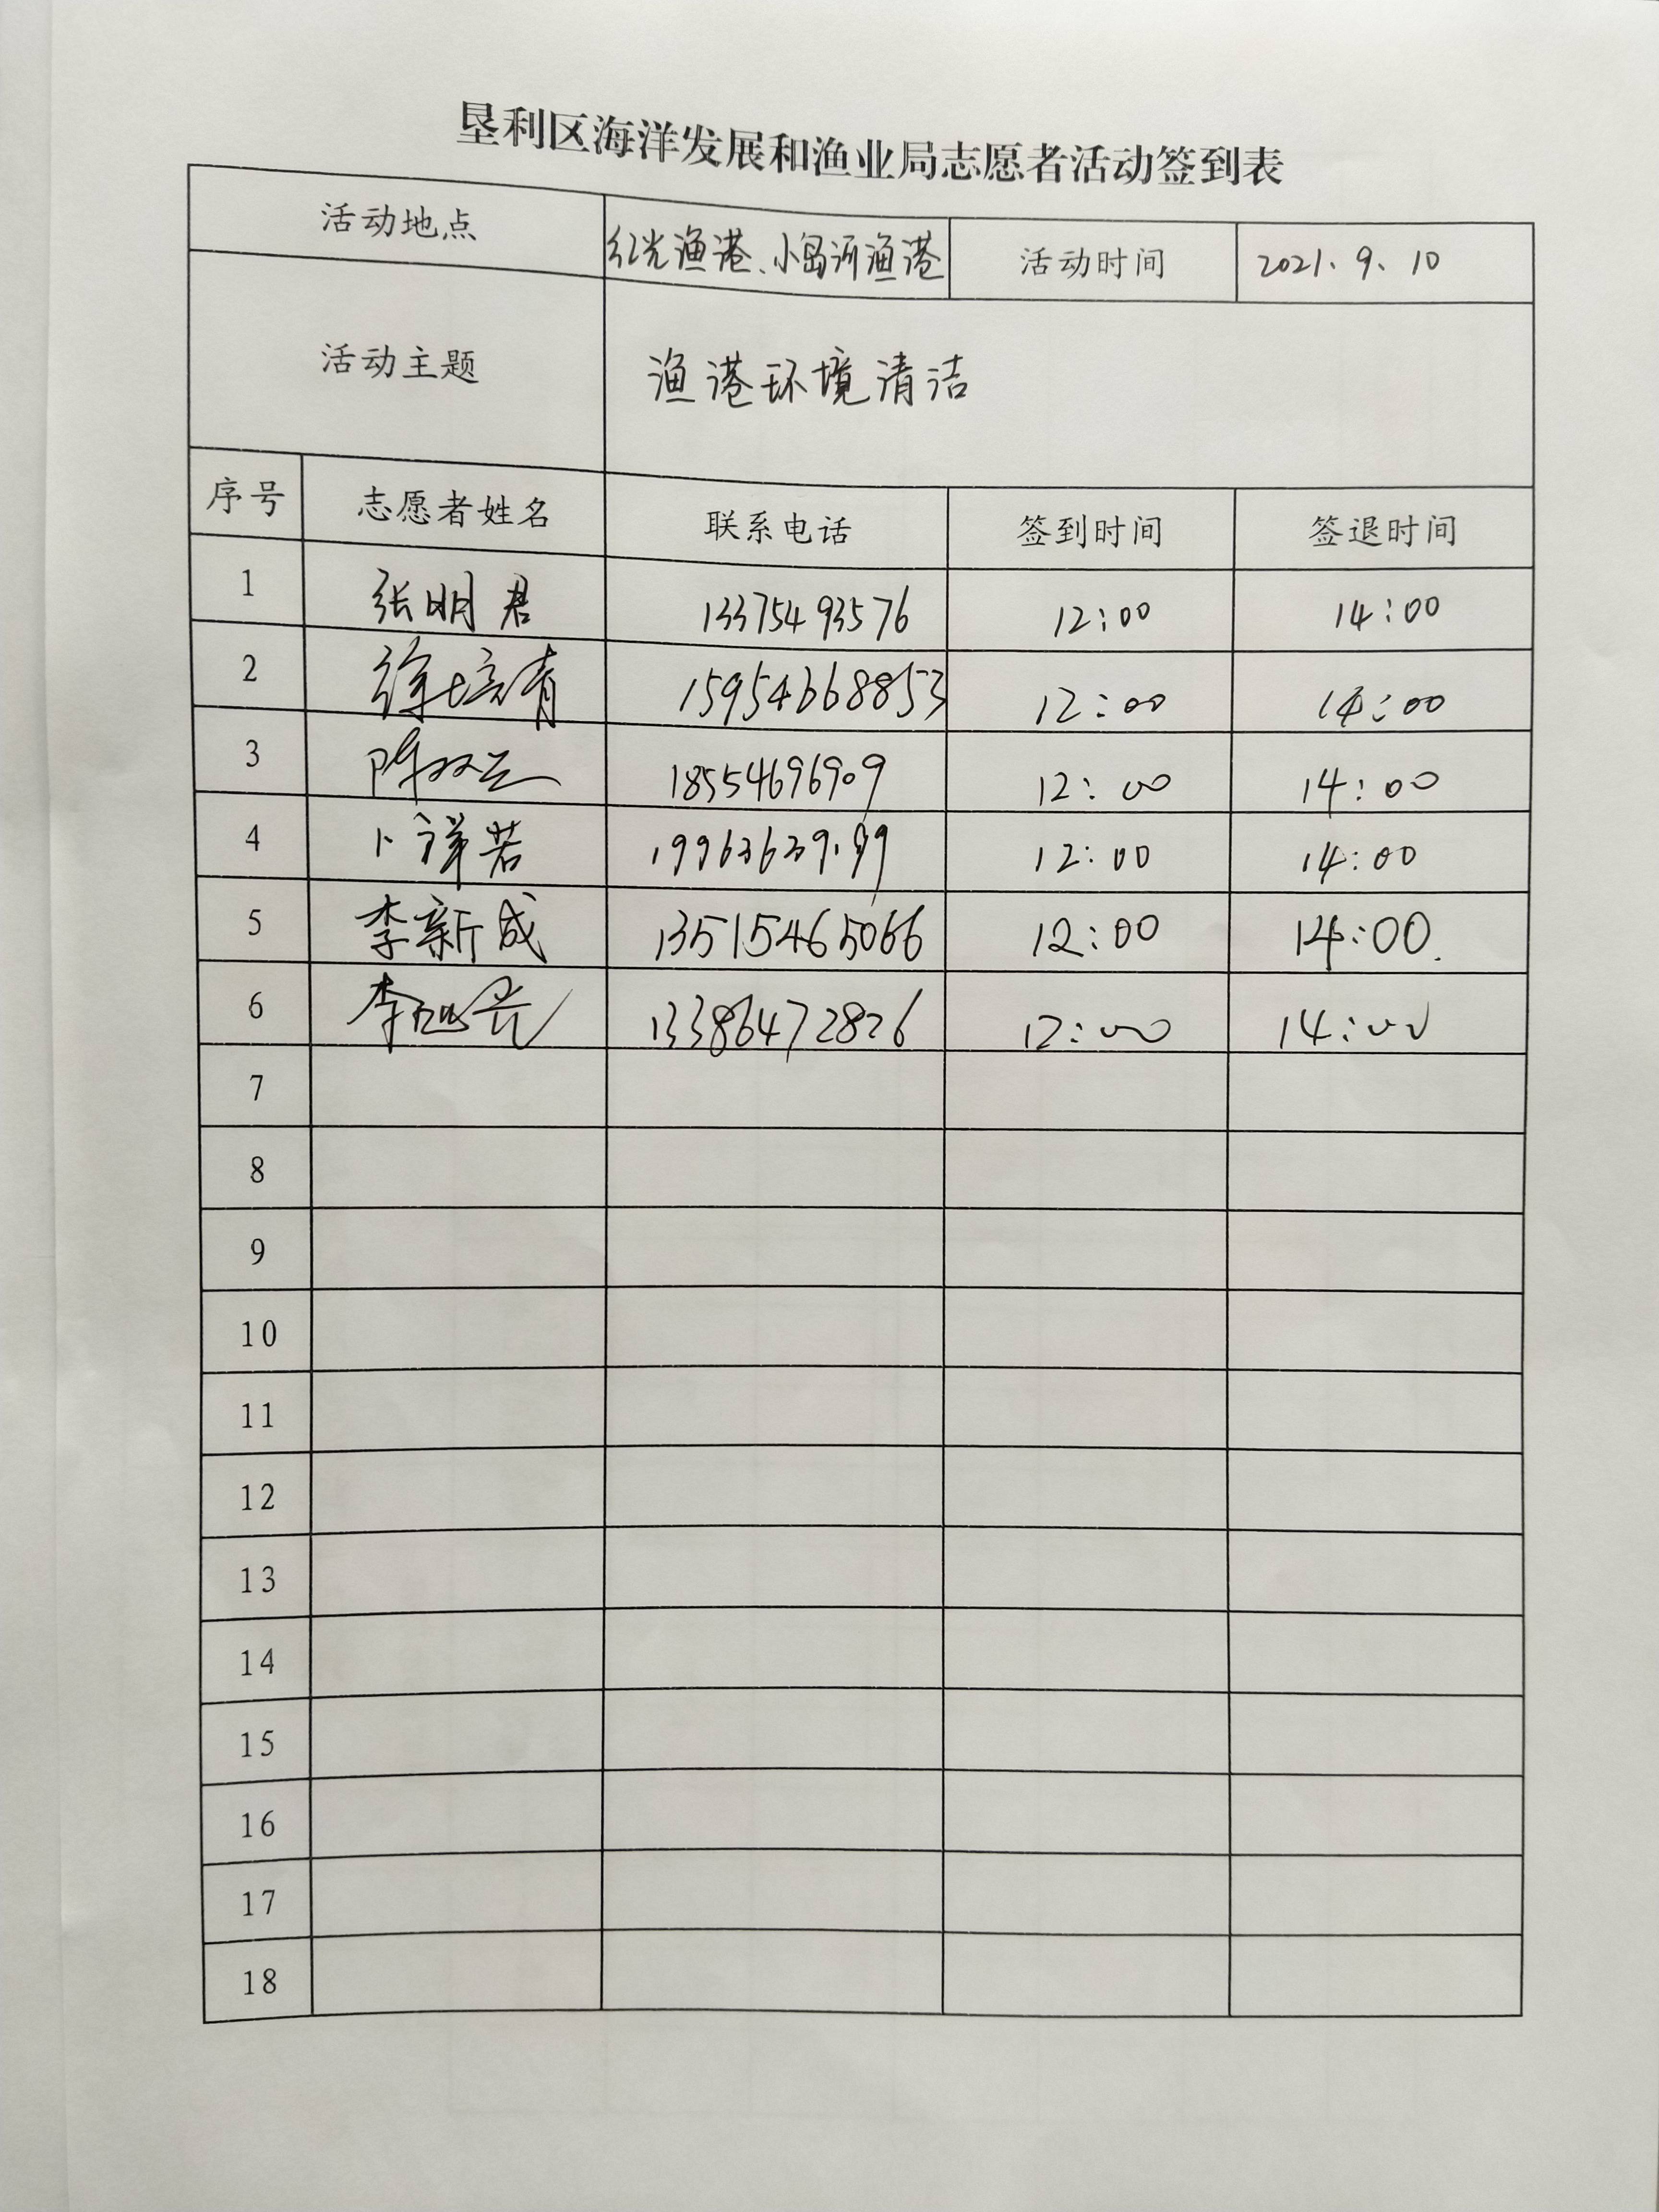 垦利区海洋发展和渔业局志愿者活动签到表
活动地点 红光渔港、小岛河渔港 活动时间 2021.9.10
活动主题 渔港环境清洁
序号 志愿者姓名 联系电话 签到时间 签退时间
1 张明君 13375493576 12:00 14:00
2 徐培青 15954668853 12:00 14:00
3 陈双 18554696909 12:00 14:00
4 卜祥若 12:00 14:00
5 李新成 13515465066 12:00 14:00.
6 李旭光 13386472826 12:00 14:00
7
8
9
10
11
12
13
14
15
16
17
18